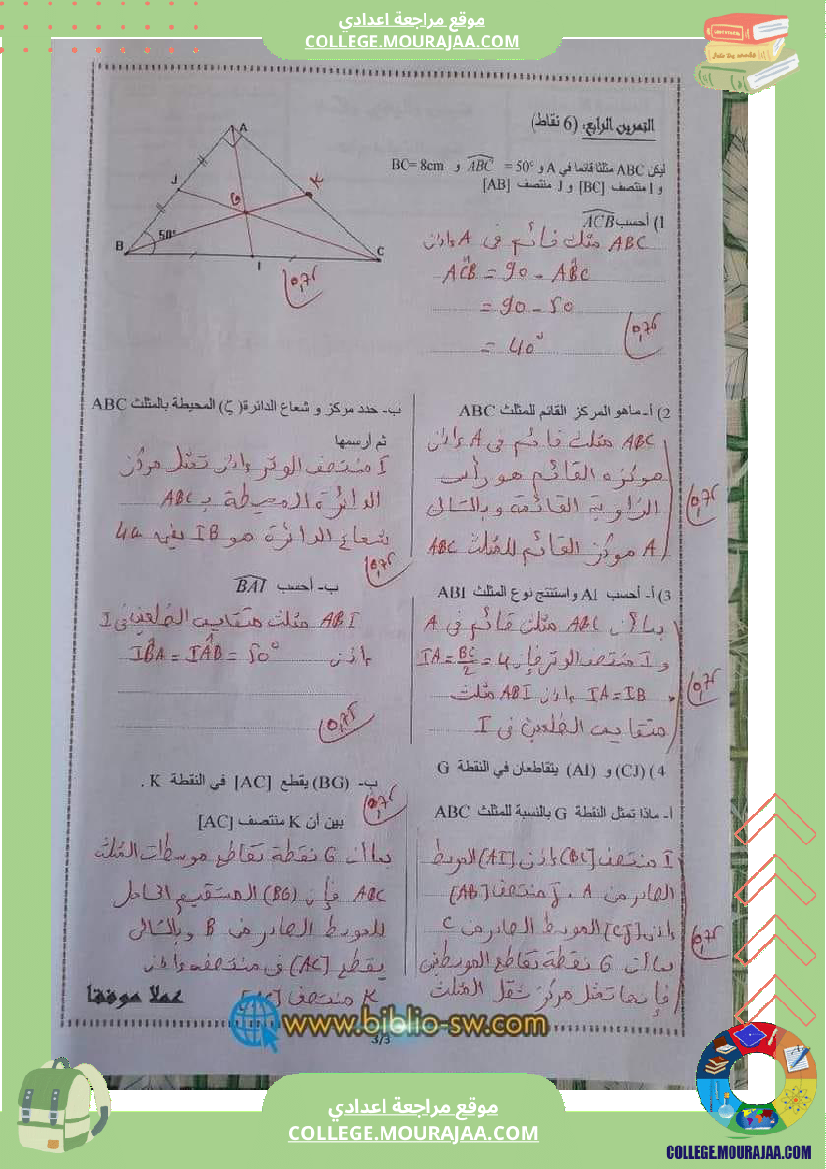 موقع مراجعة اعدادي
COLLEGE.MOURAJAA.COM
التمرين الرابع: (6 نقاط)
ليكن ABC مثلثا قائما في A و ABC = 50° و BC= 8cm
و I منتصف [BC] و J منتصف [AB]
A
J
G
K
50°
B
I
C
0,75
1) أحسب ACB
ABC مثلث قائم في A إذن
ACB = 90 - ABC
= 90 - 50
= 40°
0,75
2) أ- ماهو المركز القائم للمثلث ABC
ABC مثلث قائم في A إذن
مركزه القائم هو رأس
الزاوية القائمة وبالتالي
A مركز القائم للمثلث ABC
0,75
ب- حدد مركز و شعاع الدائرة (ζ) المحيطة بالمثلث ABC
ثم أرسمها
I منتصف الوتر إذن تمثل مركز
الدائرة المحيطة بـ ABC
شعاع الدائرة هو IB يعني 4
0,75
3) أ- أحسب AI واستنتج نوع المثلث ABI
بما أن ABC مثلث قائم في A
و I منتصف الوتر فإن IA = BC/2 = 4
IA = IB إذن ABI مثلث
متقايس الضلعين في I
0,75
ب- أحسب BAI
ABI مثلث متقايس الضلعين في I
إذن IBA = IAB = 50°
0,75
4) (CJ) و (AI) يتقاطعان في النقطة G
أ- ماذا تمثل النقطة G بالنسبة للمثلث ABC
I منتصف [BC] إذن [AI] الموسط
الصادر من A، J منتصف [AB]
إذن [CJ] الموسط الصادر من C
بما أن G نقطة تقاطع الموسطين
فإنها تمثل مركز ثقل المثلث
0,75
ب- (BG) يقطع [AC] في النقطة K .
0,75
بين أن K منتصف [AC]
بما أن G نقطة تقاطع موسطات المثلث
ABC فإن (BG) المستقيم الحامل
للموسط الصادر من B وبالتالي
يقطع [AC] في منتصفه إذن
K منتصف [AC]
عملا موفقا
www.biblio-sw.com
3/3
موقع مراجعة اعدادي
COLLEGE.MOURAJAA.COM
COLLEGE.MOURAJAA.COM